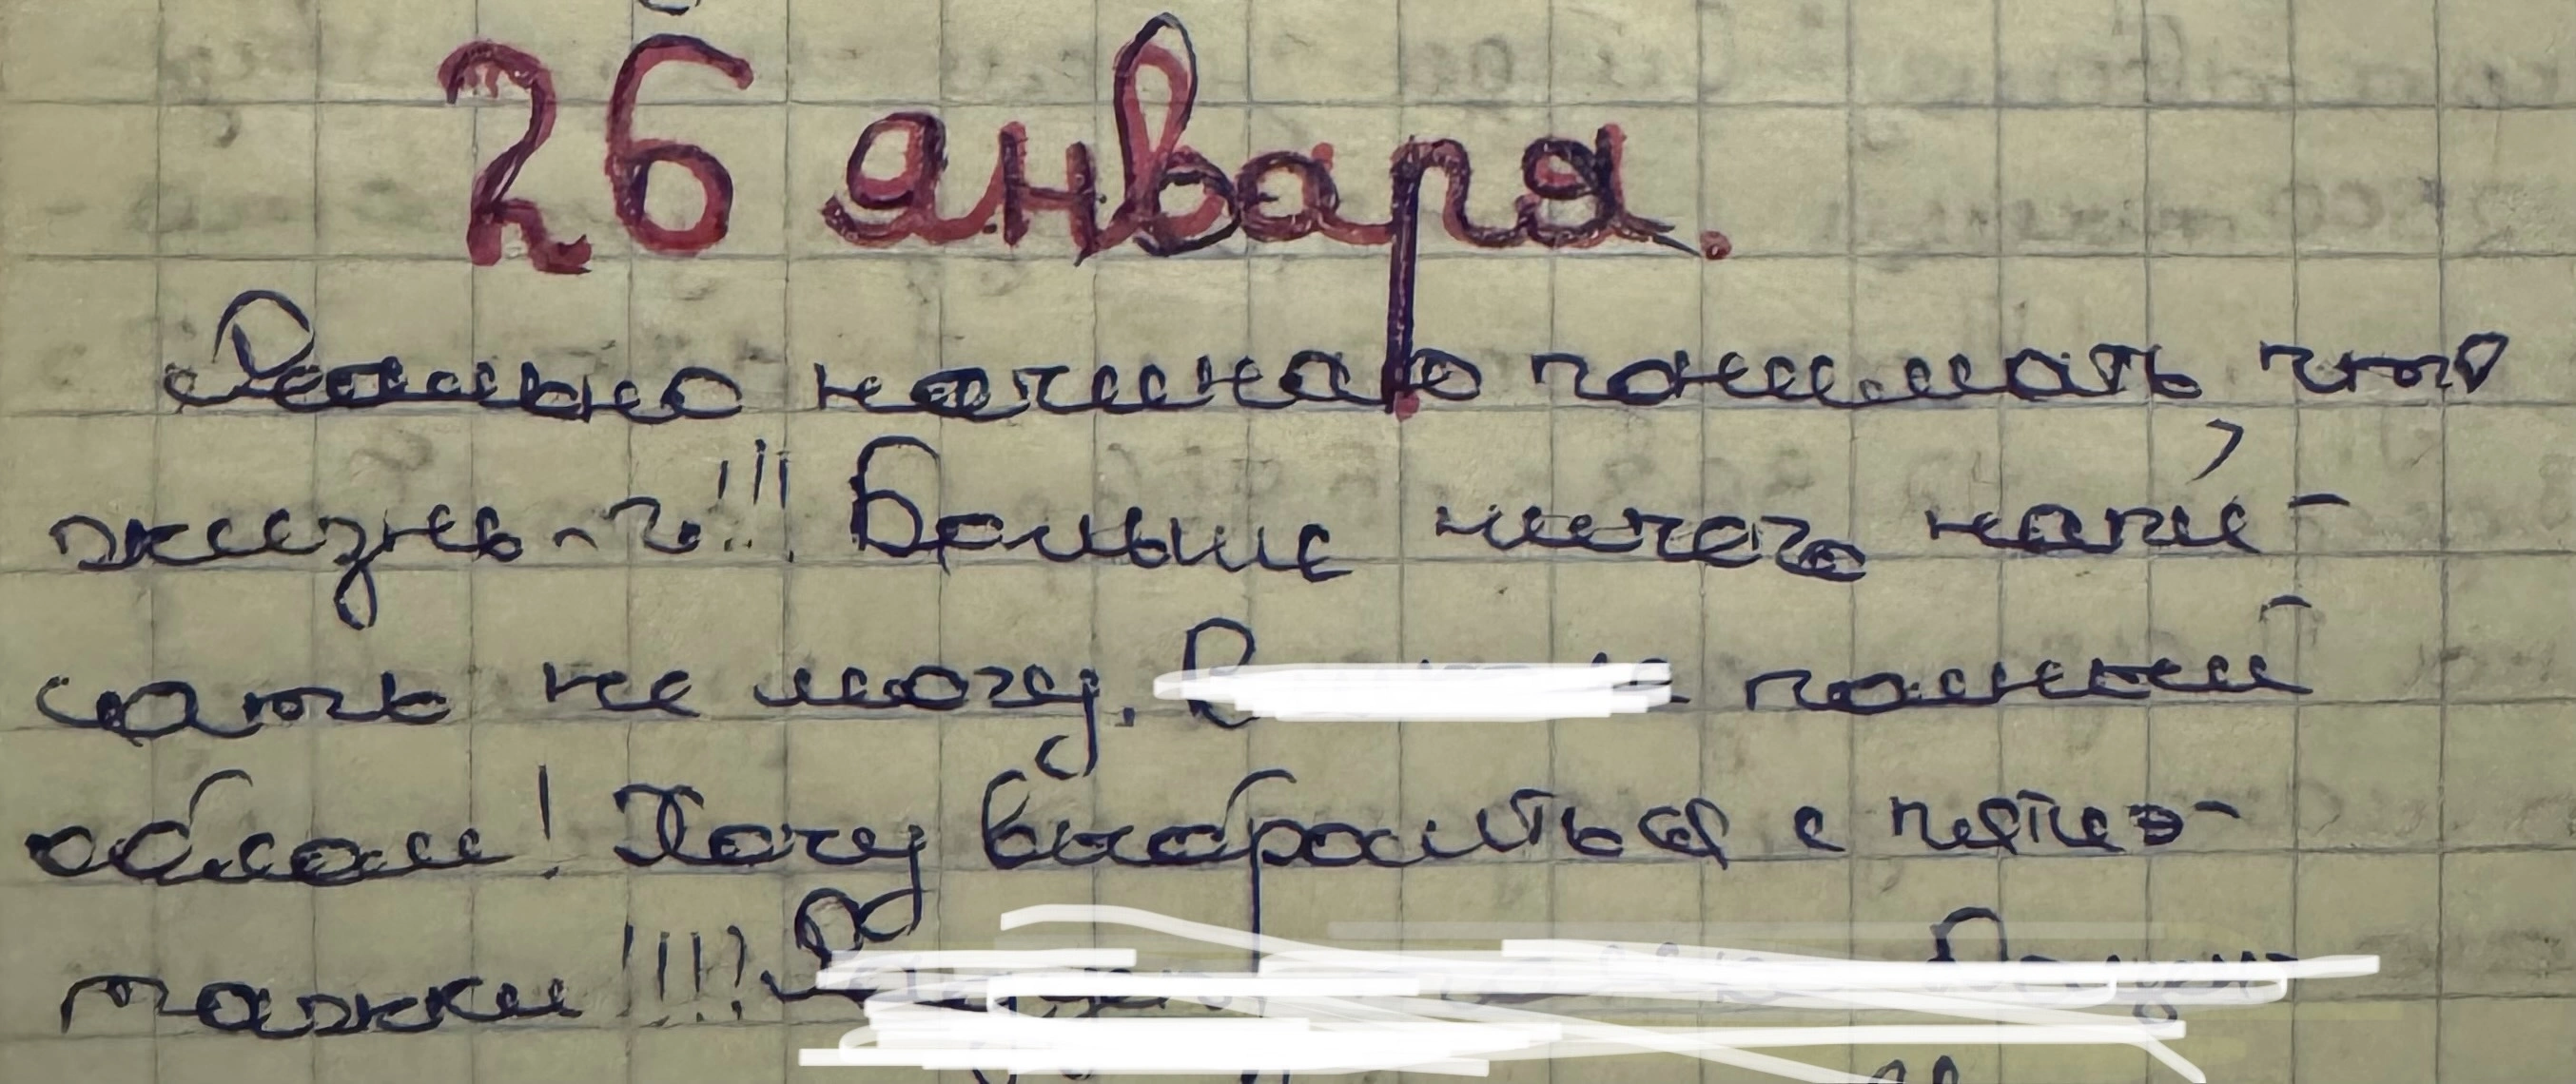 26 января.
Реально начинаю понимать что
жизнь-г!!! Больше ничего напи-
сать не могу. полный
облом! Хочу выброситься с пятиэ-
тажки!!!!